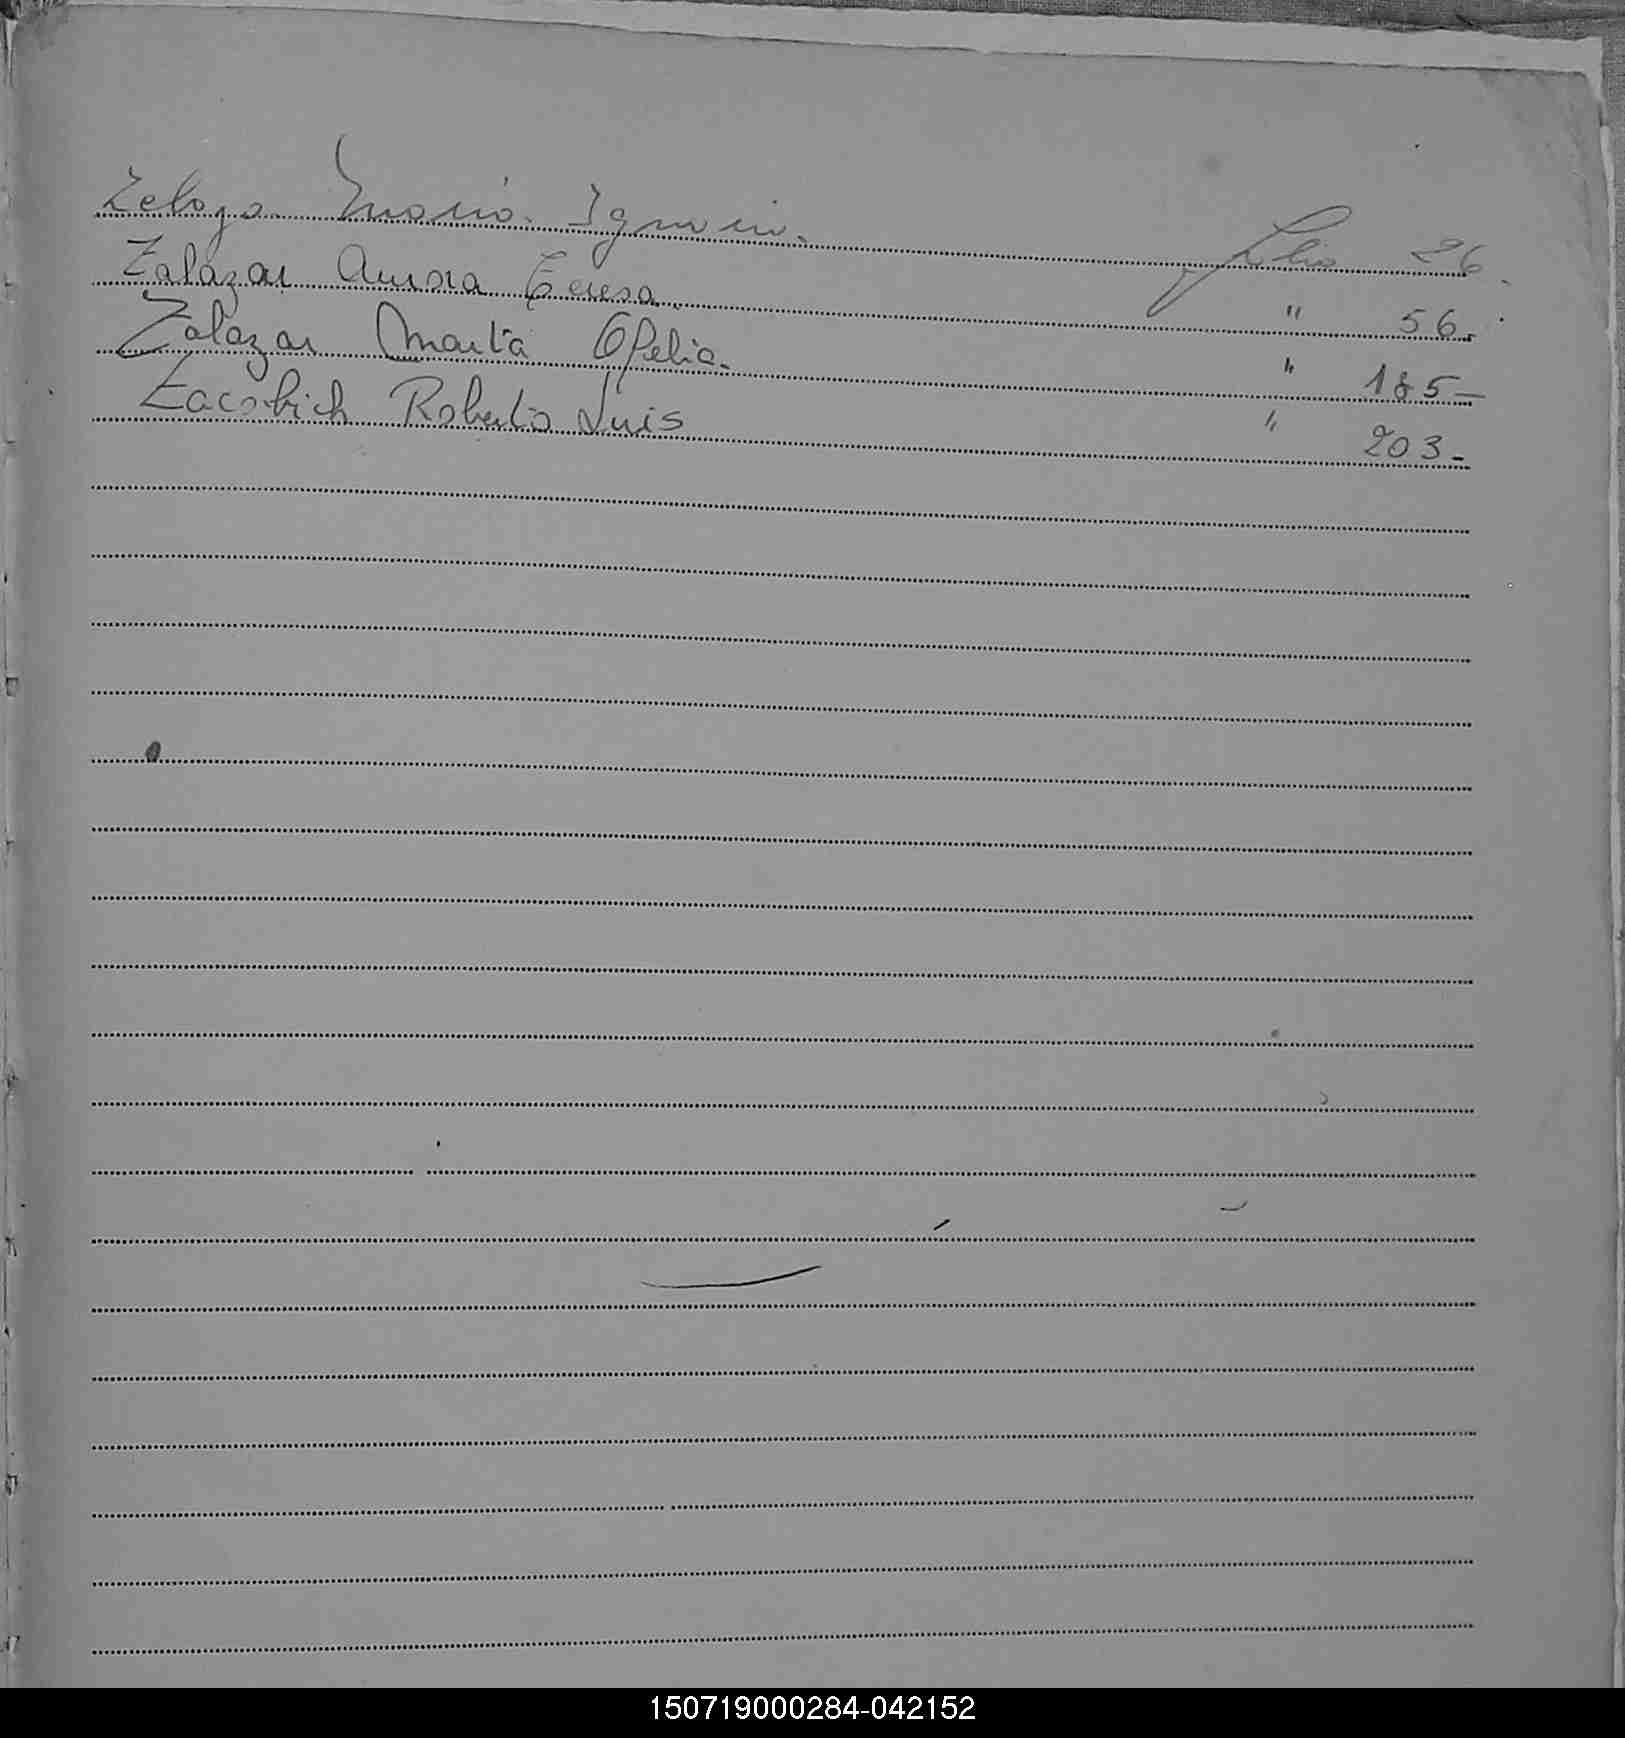 Zeloya Maria Ignacia. folio 26.
Zalazar Aurora Teresa. " 56.
Zalazar Marta Ofelia. " 185-
Zacobich Roberto Luis " 203-
150719000284-042152